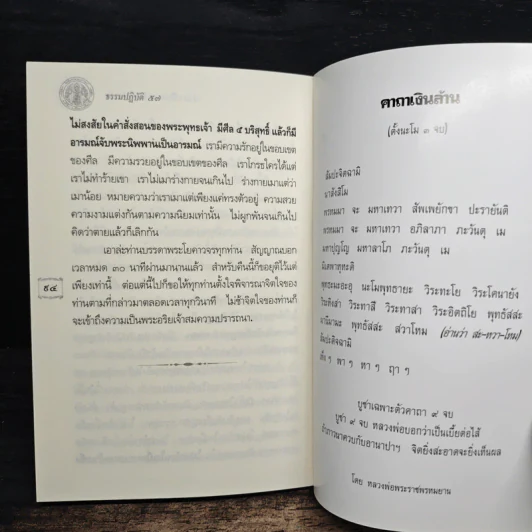 ธรรมปฏิบัติ ๕๗
ไม่สงสัยในคำสั่งสอนของพระพุทธเจ้า มีศีล ๕ บริสุทธิ์ แล้วก็มี
อารมณ์จับพระนิพพานเป็นอารมณ์ เรามีความรักอยู่ในขอบเขต
ของศีล มีความรวยอยู่ในขอบเขตของศีล เราโกรธใครได้แต่
เราไม่ทำร้ายเขา เราไม่เมาร่างกายจนเกินไป ร่างกายเมาแต่ว่า
เมาน้อย หมายความว่าเราเมาแต่เพียงแค่ทรงตัวอยู่ ความสวย
ความงามแต่งกันตามความนิยมเท่านั้น ไม่ผูกพันจนเกินไป
คิดว่าตายแล้วก็เลิกกัน
เอาล่ะท่านบรรดาพระโยคาวจรทุกท่าน สัญญาณบอก
เวลาหมด ๓๐ นาทีผ่านมานานแล้ว สำหรับคืนนี้ก็ขอยุติไว้แต่
เพียงเท่านี้ ต่อแต่นี้ไปก็ขอให้ทุกท่านตั้งใจพิจารณาจิตใจของ
ท่านตามที่กล่าวมาตลอดเวลาทุกวินาที ไม่ช้าจิตใจของท่านก็
จะเข้าถึงความเป็นพระอริยเจ้าสมความปรารถนา
๙๔
คาถาเงินล้าน
(ตั้งนะโม ๓ จบ)
สัมปะจิตฉามิ
นาสังสิโม
พรหมมา จะ มหาเทวา สัพเพยักขา ปะรายันติ
พรหมมา จะ มหาเทวา อภิลาภา ภะวันตุ เม
มหาปุญโญ มหาลาโภ ภะวันตุ เม
มิเตพาหุหะติ
พุทธะมะอะอุ นะโมพุทธายะ วิระทะโย วิระโคนายัง
วิระหิงสา วิระทาสี วิระทาสา วิระอิตถิโย พุทธัสสะ
มานีมามะ พุทธัสสะ สวาโหม (อ่านว่า สะ-หวา-โหม)
สัมปะติจฉามิ
เพ็ง ๆ พา ๆ หา ๆ ฤา ๆ
บูชาเฉพาะตัวคาถา ๙ จบ
บูชา ๙ จบ หลวงพ่อบอกว่าเป็นเบี้ยต่อไส้
ถ้าภาวนาควบกับอานาปาฯ จิตยิ่งสะอาดจะยิ่งเห็นผล
โดย หลวงพ่อพระราชพรหมยาน